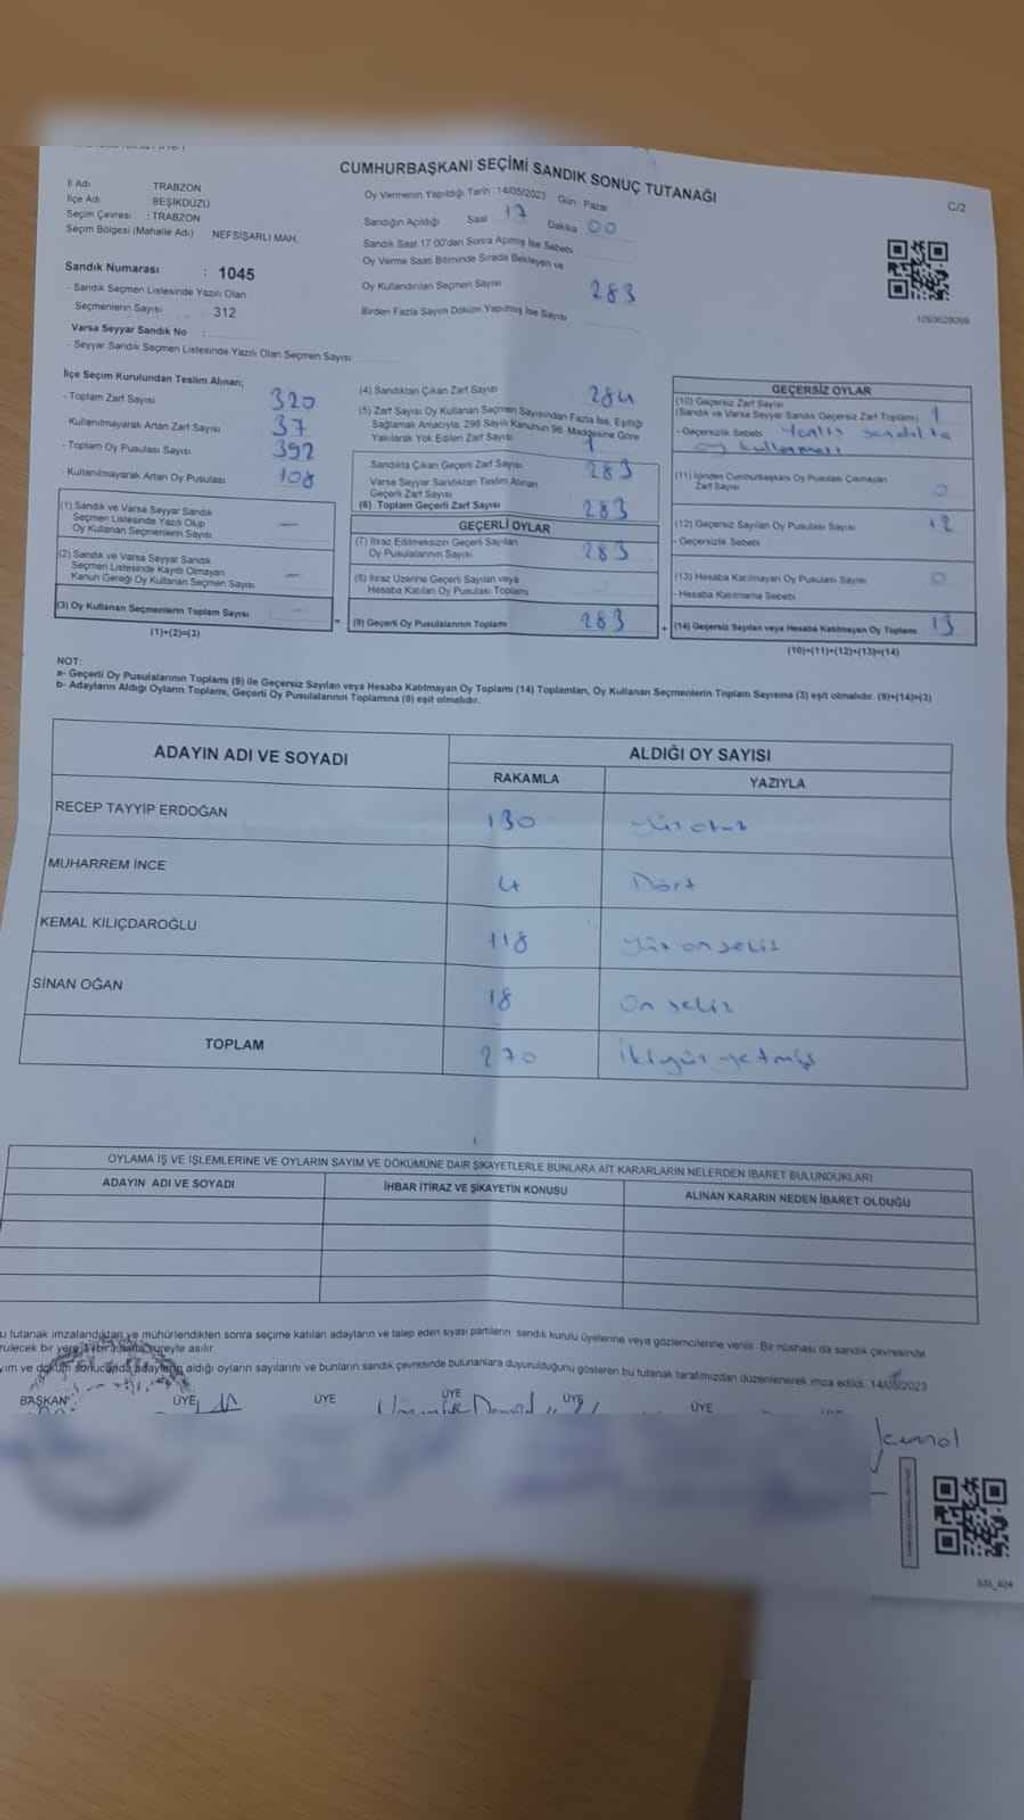 CUMHURBAŞKANI SEÇİMİ SANDIK SONUÇ TUTANAĞI
C/2
İl Adı TRABZON
İlçe Adı BEŞİKDÜZÜ
Seçim Çevresi : TRABZON
Seçim Bölgesi (Mahalle Adı) NEFSİŞARLI MAH.
Oy Vermenin Yapıldığı Tarih :14/05/2023 Gün: Pazar
Sandığın Açıldığı Saat 17 Dakika 00
Sandık Saat 17:00'dan Sonra Açılmış İse Sebebi
Oy Verme Saati Bitiminde Sırada Bekleyen ve
Oy Kullandırılan Seçmen Sayısı 283
Birden Fazla Sayım Döküm Yapılmış İse Sayısı
Sandık Numarası : 1045
- Sandık Seçmen Listesinde Yazılı Olan
Seçmenlerin Sayısı 312
Varsa Seyyar Sandık No :
- Seyyar Sandık Seçmen Listesinde Yazılı Olan Seçmen Sayısı
İlçe Seçim Kurulundan Teslim Alınan;
- Toplam Zarf Sayısı 320
- Kullanılmayarak Artan Zarf Sayısı 37
- Toplam Oy Pusulası Sayısı 392
- Kullanılmayarak Artan Oy Pusulası 108
(1) Sandık ve Varsa Seyyar Sandık
Seçmen Listesinde Yazılı Olup
Oy Kullanan Seçmenlerin Sayısı —
(2) Sandık ve Varsa Seyyar Sandık
Seçmen Listesinde Kayıtlı Olmayan
Kanun Gereği Oy Kullanan Seçmen Sayısı —
(3) Oy Kullanan Seçmenlerin Toplam Sayısı
(1)+(2)=(3)
(4) Sandıktan Çıkan Zarf Sayısı 284
(5) Zarf Sayısı Oy Kullanan Seçmen Sayısından Fazla İse, Eşitliği
Sağlamak Amacıyla, 298 Sayılı Kanunun 98. Maddesine Göre
Yakılarak Yok Edilen Zarf Sayısı 1
Sandıkta Çıkan Geçerli Zarf Sayısı 283
Varsa Seyyar Sandıktan Teslim Alınan
Geçerli Zarf Sayısı
(6) Toplam Geçerli Zarf Sayısı 283
GEÇERLİ OYLAR
(7) İtiraz Edilmeksizin Geçerli Sayılan
Oy Pusulalarının Sayısı 283
(8) İtiraz Üzerine Geçerli Sayılan veya
Hesaba Katılan Oy Pusulası Toplamı
(9) Geçerli Oy Pusulalarının Toplamı 283
GEÇERSİZ OYLAR
(10) Geçersiz Zarf Sayısı
(Sandık ve Varsa Seyyar Sandık Geçersiz Zarf Toplamı) 1
- Geçersizlik Sebebi Yanlış sandıkta
oy kullanması
(11) İçinden Cumhurbaşkanı Oy Pusulası Çıkmayan
Zarf Sayısı 0
(12) Geçersiz Sayılan Oy Pusulası Sayısı 12
- Geçersizlik Sebebi
(13) Hesaba Katılmayan Oy Pusulası Sayısı 0
- Hesaba Katılmama Sebebi
(14) Geçersiz Sayılan veya Hesaba Katılmayan Oy Toplamı 13
(10)+(11)+(12)+(13)=(14)
NOT:
a- Geçerli Oy Pusulalarının Toplamı (9) ile Geçersiz Sayılan veya Hesaba Katılmayan Oy Toplamı (14) Toplamları, Oy Kullanan Seçmenlerin Toplam Sayısına (3) eşit olmalıdır. (9)+(14)=(3)
b- Adayların Aldığı Oyların Toplamı, Geçerli Oy Pusulalarının Toplamına (9) eşit olmalıdır.
ADAYIN ADI VE SOYADI
ALDIĞI OY SAYISI
RAKAMLA YAZIYLA
RECEP TAYYİP ERDOĞAN 130 Yüz otuz
MUHARREM İNCE 4 Dört
KEMAL KILIÇDAROĞLU 118 Yüz on sekiz
SİNAN OĞAN 18 On sekiz
TOPLAM 270 İkiyüz yetmiş
OYLAMA İŞ VE İŞLEMLERİNE VE OYLARIN SAYIM VE DÖKÜMÜNE DAİR ŞİKAYETLERLE BUNLARA AİT KARARLARIN NELERDEN İBARET BULUNDUKLARI
ADAYIN ADI VE SOYADI
İHBAR İTİRAZ VE ŞİKAYETİN KONUSU
ALINAN KARARIN NEDEN İBARET OLDUĞU
u tutanak imzalandıktan ve mühürlendikten sonra seçime katılan adayların ve talep eden siyasi partilerin sandık kurulu üyelerine veya gözlemcilerine verilir. Bir nüshası da sandık çevresinde
rülecek bir yere bir hafta süreyle asılır.
yım ve döküm sonucunda adayların aldığı oyların sayılarını ve bunların sandık çevresinde bulunanlara duyurulduğunu gösteren bu tutanak tarafımızdan düzenlenerek imza edildi. 14/05/2023
BAŞKAN ÜYE ÜYE ÜYE ÜYE ÜYE